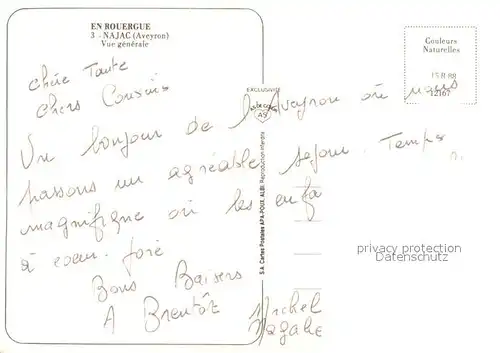 EN ROUERGUE
3 - NAJAC (Aveyron)
Vue générale
Couleurs
Naturelles
15 R 88
12167
EXCLUSIVITÉ
AS
S.A. Cartes Postales APA-POUX, ALBI. Reproduction interdite
chère Tante
chers Cousins
Un bonjour de l'Aveyron où nous
passons un agréable séjour. Temps
magnifique où les enfa
à coeur joie
Bons Baisers
A Bientôt Michel
privacy protection
Datenschutz